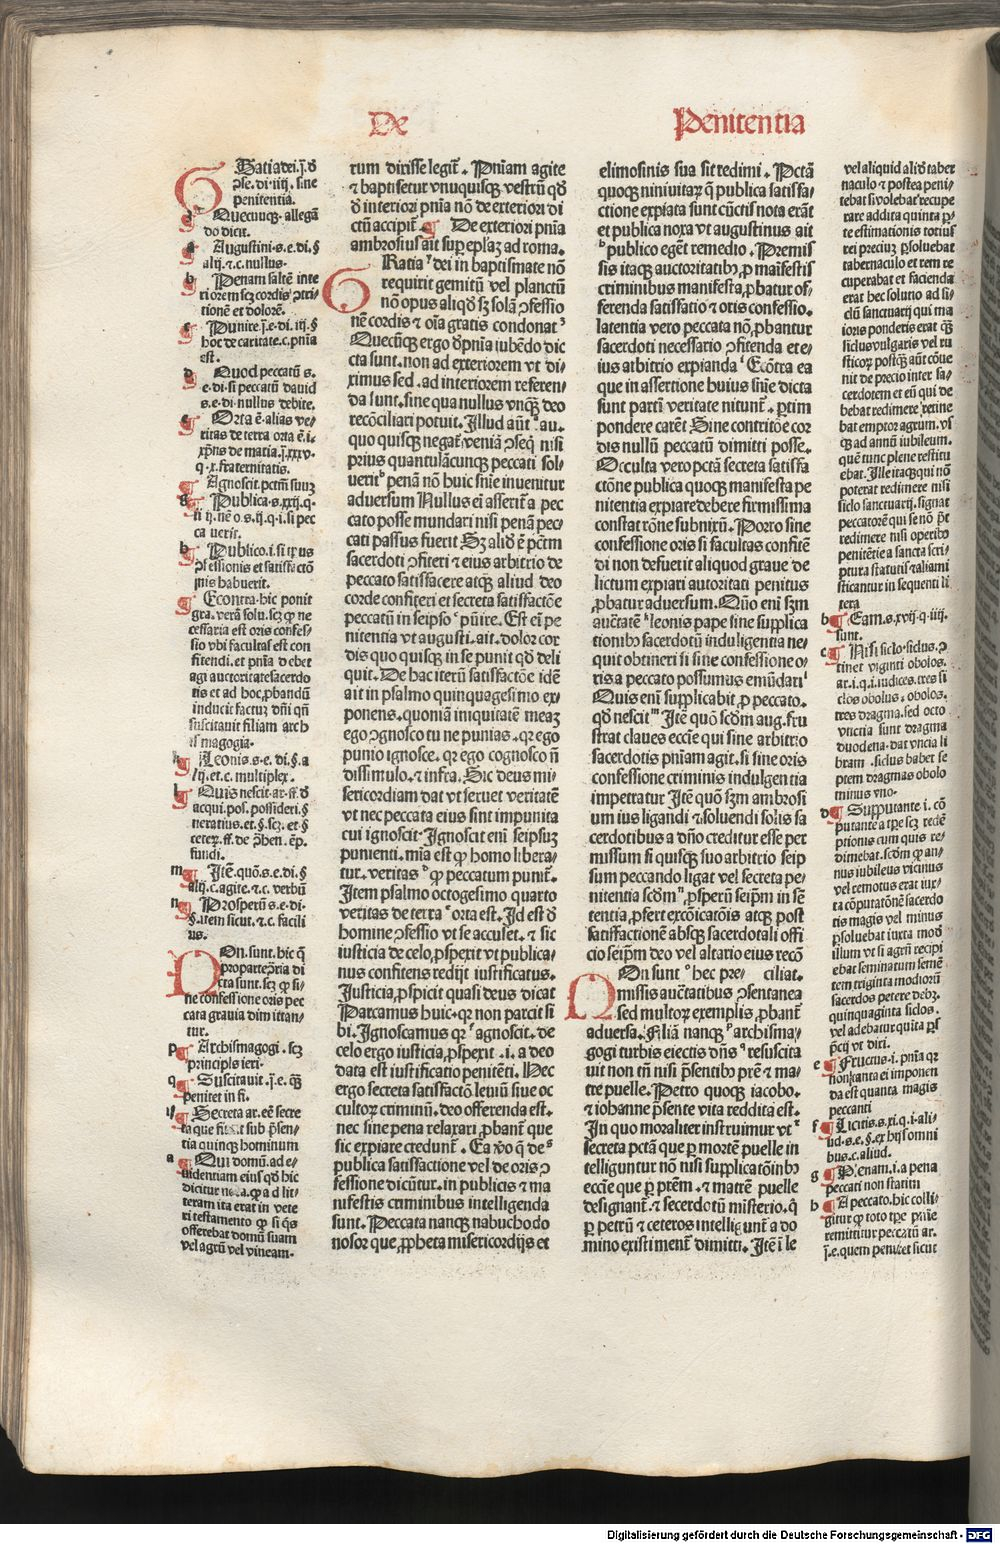 De
Penitentia
Gratia dei.j.ð
ꝯse.di.iiij. sine
penitentia.
Quecunqꝫ. allegā
do dicit.
a Augustini.s.e.di.§
alij.⁊.c.nullus.
b Penam saltē inte
riorem scꝫ cordis ꝯtri-
tionē et dolorē.
c Punire.j.e.di.iij.§
hoc de caritate.c.pn̄ia
est.
d Quod peccatū.s.
e.di.si peccatū dauid
s.e.di.nullus debite.
e Orta ē.alias ve-
ritas de terra orta ē.i.
xp̄us de maria.j.xxxv.
q.x.fraternitatis.
Agnoscit.pctm̄ suuꝫ
g Publica.s.xxij.q.
ij.nē o.s.ij.q.i.si pec
ca uerit.
h Publico.i.si
ꝯfessionis et satisfactō
nis habuerit.
Econtra.hic ponit
gra.verā solu.scꝫ ꝙ ne
cessaria est oris confes-
sio vbi facultas est con
fitendi.et pn̄ia debet
agi auctoritate sacerdo
tis et ad hoc ꝓbandū
inducit factuꝫ dn̄i qn̄
suscitauit filiam arch
is magogia.
k Leonis.s.e.di.§.a
lij.et.c.multiplex.
l Quis nescit.ar.ff.ð
acqui.pos.possideri.§
neratius.et.§.scꝫ.et §
ceteꝝ.ff.de p̄ben.ēp.
fundi.
m Itē.quō.s.e.di.§
alij.c.agite.⁊.c.verbū
n Prosperū.s.e.di.
§.item sicut.⁊.c.facili
us.
Non.sunt.hic q̄
pro parte p̄ria di
cta sunt.scꝫ ꝙ si-
ne confessione oris pec
cata grauia dimittan-
tur.
p Archismagogi.scꝫ
principis ieri.
q Suscitauit.j.e.qꝫ
penitet in fi.
Secreta ar.eē secre
ta que sub p̄sen-
tia quinqꝫ hominum
a Qui domū.ad e-
uidentiam eius qð hic
dicitur ꝙ ad lit-
teram ita erat in vete
ri testamento ꝙ si qs
offerebat domū suam
vel agrū vel vineam.
rum dixisse legit̄. Pn̄iam agite
⁊ baptisetur vnusquisqꝫ vestrū qð
ð interiori pn̄ia nō de exteriori di
ctū accipit̄. De exteriori pn̄ia
ambrosius ait sup epl̄aꝫ ad roma.
Gratia dei in baptismate nō
requirit gemitū vel planctū
nō opus aliqð sꝫ solā ꝯfessio
nē cordis ⁊ oīa gratis condonat
Quecūqꝫ ergo ð pn̄ia iubēdo dic
cta sunt.non ad exteriorem vt di-
ximus sed.ad interiorem referen-
da sunt.sine qua nullus vnqꝫ deo
recōciliari potuit. Illud aūt au.
quo quisqꝫ negat̄ veniā ꝯseq̄ nisi
prius quantulācunqꝫ peccati sol-
uerit penā nō huic sn̄ie inuenitur
aduersum Nullus eī asserit a pec
cato posse mundari nisi penā pec-
cati passus fuerit Sꝫ alið ē pctm̄
sacerdoti ꝯfiteri ⁊ eius arbitrio de
peccato satisfacere atqꝫ aliud deo
corde confiteri et secreta satisfactōe
peccatū in seipso pūire. Est eī pe
nitentia vt augusti.ait.dolor cor
dis quo quisqꝫ in se punit qð deli
quit. De hac iterū satisfactōe idē
ait in psalmo quinquagesimo ex-
ponens.quoniā iniquitatē meaꝫ
ego ꝯgnosco tu ne punias.qꝛ ego
punio ignosce. qꝛ ego cognosco n̄
dissimulo.⁊ infra. Sic deus mi-
sericordiam dat vt seruet veritatē
vt nec peccata eius sint impunita
cui ignoscit. Ignoscit enī seipsuꝫ
punienti.mīa est ꝙ homo libera-
tur.veritas ꝙ peccatum punit̄.
Item psalmo octogesimo quarto
veritas de terra orta est. Id est ð
homine ꝯfessio vt se accuset.⁊ sic
iusticia de celo ꝓspexit vt publica-
nus confitens redijt iustificatus.
Iusticia ꝓspicit quasi deus dicat
Parcamus huic.qꝛ non parcit si
bi. Ignoscamus qꝛ agnoscit.de
celo ergo iusticia ꝓspexit.i.a deo
data est iustificatio penitēti. Nec
ergo secreta satisfactō leuiū siue oc
cultoꝝ criminū.deo offerenda est.
nec sine pena relaxari ꝓbant̄ que
sic expiare credunt̄. Ea v̄o q̄ de
publica satisfactione vel de oris ꝯ
fessione dicūtur.in publicis ⁊ ma
nifestis criminibus intelligenda
sunt. Peccata nanqꝫ nabuchodo
nosor que ꝓpheta misericordijs et
elimosinis sua sit redimi. Pctā
quoqꝫ niniuitaꝝ q̄ publica satisfa-
ctione expiata sunt cūctis nota erāt
et publica noxa vt augustinus ait
publico eget̄ remedio. Premis
sis itaqꝫ auctoritatibꝰ ꝓ maīfestis
criminibus manifesta ꝓbatur of-
ferenda satisfatio ⁊ oris confessio.
latentia vero peccata nō ꝓbantur
sacerdoti necessario ꝯfitenda et e-
ius arbitrio expianda Ecōtra ea
que in assertione huius sn̄ie dicta
sunt partī veritate nitunt̄. ꝑtim
pondere carēt Sine contritōe cor
dis nullū peccatū dimitti posse.
Occulta vero pctā secreta satisfa
ctōne publica quoqꝫ manifesta pe
nitentia expiare debere firmissima
constat rōne subnixū. Porro sine
confessione oris si facultas confitē
di non defuerit aliquod graue de
lictum expiari autoritati penitus
ꝓbatur aduersum. Quō enī sꝫm
auc̄tatē leonis pape sine supplica
tionibꝰ sacerdotū indulgentia ne-
quit obtineri si sine confessione o-
ris a peccato possumus emūdari
Quis enī supplicabit ꝓ peccato.
qð nescit Itē quō scðm aug.fru
strat claues eccīe qui sine arbitrio
sacerdotis pn̄iam agit.si sine oris
confessione criminis indulgentia
impetratur Itē quō sꝫm ambrosi
um ius ligandi ⁊ soluendi solis sa
cerdotibus a dn̄o creditur esse per
missum si quisqꝫ suo arbitrio seip
sum peccando ligat vel secreta pe-
nitentia scðm ꝓsperū seip̄m in sē
tentia ꝓfert excōicatōis atqꝫ post
satisfactionē absqꝫ sacerdotali offi
cio seip̄m deo vel altario eius recō
Non sunt hec pre- ciliat.
missis auctatibus ꝯsentanea
sed multoꝝ exemplis ꝓbant̄
aduersa. Filiā nanqꝫ archisma-
gogi turbis eiectis dn̄s resuscita
uit non tn̄ nisi p̄sentibꝰ pr̄e ⁊ ma-
tre puelle. Petro quoqꝫ iacobo.
⁊ iohanne p̄sente vita reddita est.
In quo moraliter instruimur vt
secreta pctā que ꝑ mortē puelle in
telliguntur nō nisi supplicatōībꝰ
eccīe que ꝑ pr̄em.⁊ matrē puelle
designant̄.⁊ sacerdotū misterio.q̄
ꝑ petrū ⁊ ceteros intelligunt̄ a do
mino existiment̄ dimitti. Itē ī le
vel aliquid alið taber
naculo ⁊ postea peni-
tebat si volebat recupe
rare addita quinta ꝑ-
te estimationis totius
rei preciuꝫ ꝑsoluebat
tabernaculo et rem re
cuperabat et facienda
erat hec solutio ad si-
clū sanctuarij qui ma
ioris ponderis erat qꝫ
siclus vulgaris vel ru
sticoꝝ postqꝫ aūt cōue
nit de precio inter sa-
cerdotem et eū qui de
bebat redimere retine
bat emptor agrum.vs
qꝫ ad annū iubileum.
quē tunc plene restitu
ebat. Ille itaqꝫ qui nō
poterat redimere nisi
siclo sanctuarij.signat
peccatorē qui se nō pt̄
redimere nisi operibꝰ
penitētie a sancta scri-
ptura statutis ⁊ aliami
sticantur in sequenti li
tera
b Eam.s.xvij.q.iiij.
sunt.
c Nisi siclo.siclus.ꝯ
tinet viginti obolos.
ar.i.q.i.iudices.tres si
clos obolus. obolos.
tres dragma.sed octo
vncia sunt dragma
duodena.dat vncia li
bram.siclus habet se
ptem dragmas obolo
minus vno.
d Supputante.i.cō
putante a tp̄e scꝫ redē
ptionis cum quis re-
dimebat.scðm ꝙ an-
nus iubileus vicinus
vel remotus erat iux-
ta cōputatōnē sacerdo
tis magis vel minus
ꝑsoluebat iuxta modū
illum vt si agrū recipi
ebat seminatum semē
tem triginta modiorū
sacerdos petere debꝫ.
quinquaginta siclos.
vel adebatur quīta ꝑs
p̄cij vt diri.
e Fructus.i.pn̄ia qꝛ
non tanta ei imponen
da est quanta magis
peccanti
f Licitis.s.xi.q.i.ali-
ud.s.e.§.ex hijs omni
bus.c.aliud.
g Penam.i.a pena
peccati non statim
h A peccato.hic colli-
gitur ꝙ toto tp̄e pn̄ie
remittitur peccatū ar.
j.e.quem penitet sicut
Digitalisierung gefördert durch die Deutsche Forschungsgemeinschaft - DFG